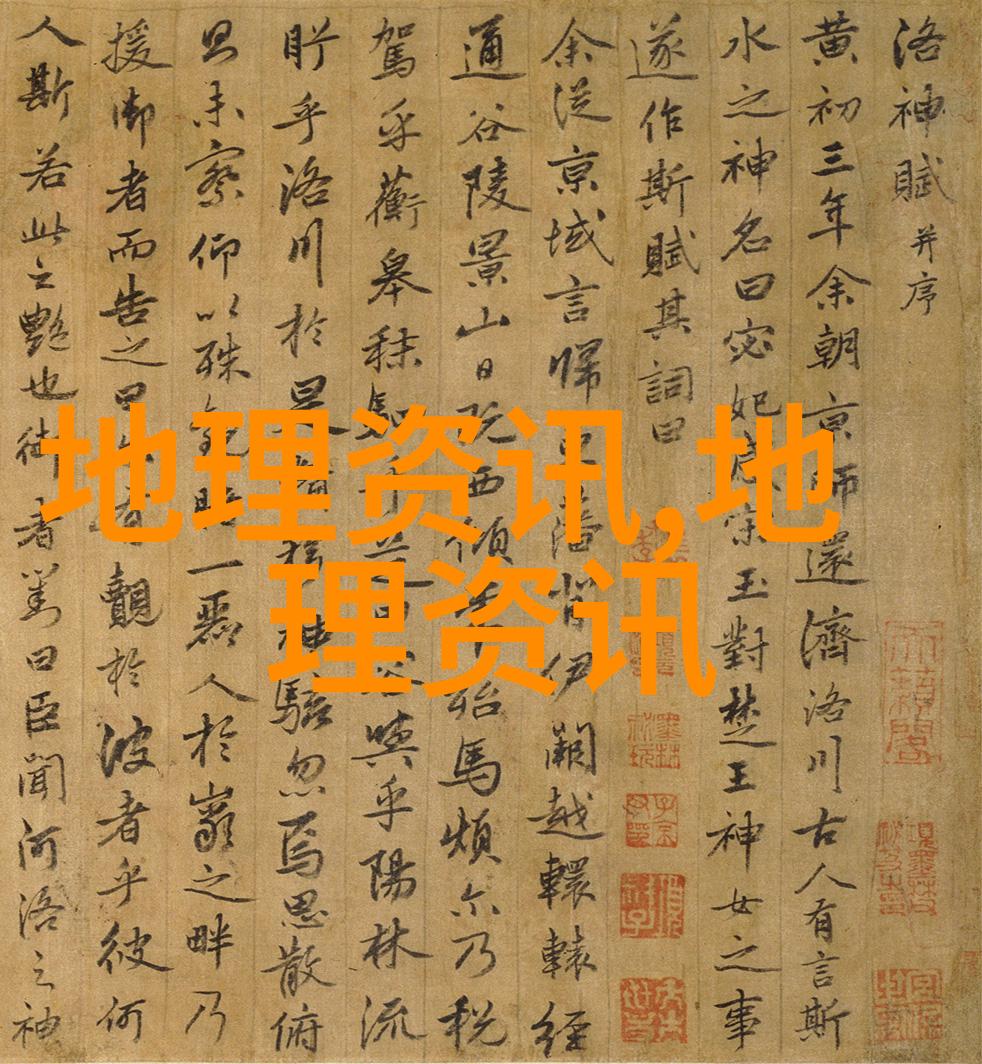 洛神賦并序
黄初三年余朝京師還濟洛川古人有言斯
水之神名曰宓妃感宋玉對楚王神女之事
遂作斯賦其詞曰
余從京域言歸藩背伊闕越轘轅經
通谷陵景山日既西傾殆馬煩尒乃税
駕乎蘅皋秣駟乎芝田容與乎陽林流
眄乎洛川於是精移神駭忽焉思散俯
則未察仰以殊觀睹一麗人於巖之畔乃
援御者而告之曰有覿於彼者乎彼何
人斯若此之艷也御者對曰臣聞河洛之神
地理资讯,地
理资讯